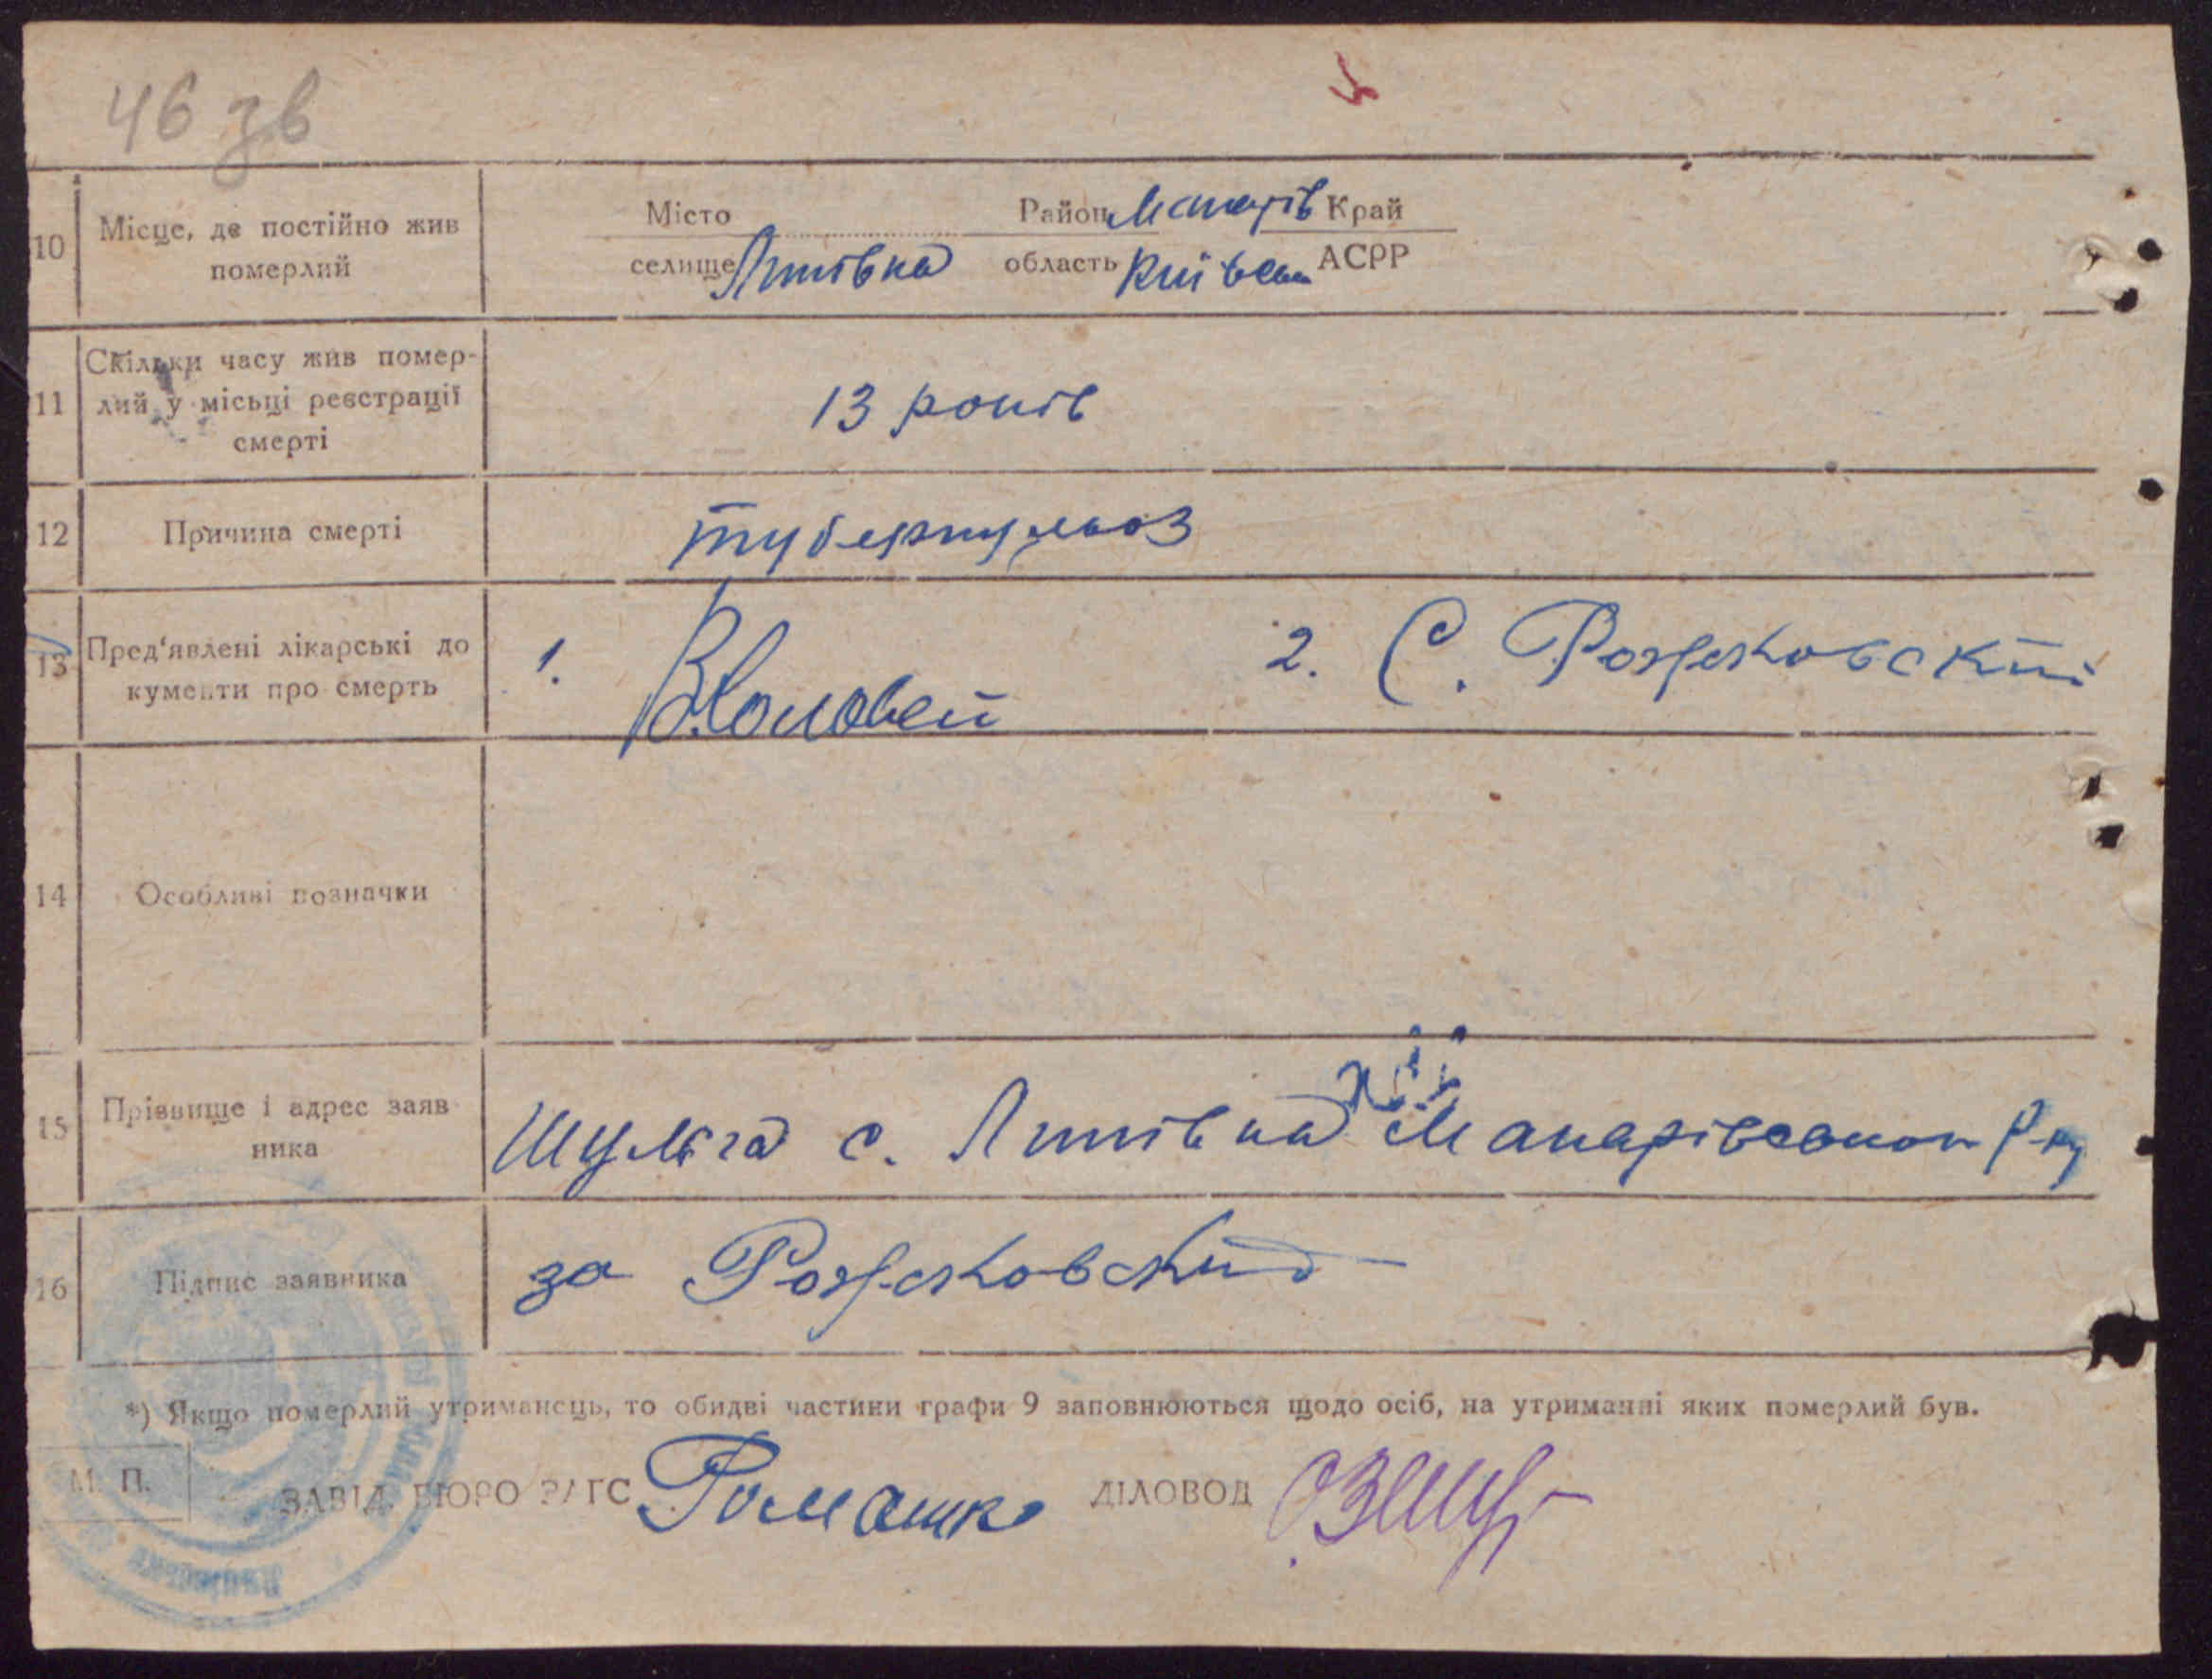 46 зв
10 Місце, де постійно жив померлий
Місто Район Макарів Край
селище Липівка область Київська АСРР
11 Скільки часу жив помер-
лий у місці реєстрації
смерті
13 років
12 Причина смерті туберкульоз
13 Пред'явлені лікарські до
кументи про смерть
1. 2. С.
14 Особливі позначки
15 Прізвище і адрес заяв
ника
Шульга с. Липівка Макарівского р-ну
16 Підпис заявника за
*) Якщо померлий утриманець, то обидві частини графи 9 заповнюються щодо осіб, на утриманні яких померлий був.
М. П.
ЗАВІД. БЮРО РАГС Ромашко ДІЛОВОД